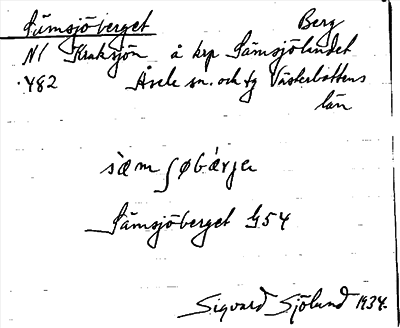 Sämsjöberget Berg
Nl Kraksjön å krp Sämsjölandet
482 Åsele sn. och tg Västerbottens
län
sæmʃøbærjə
Sämsjöberget G54
Sigvard Sjölund 1934.